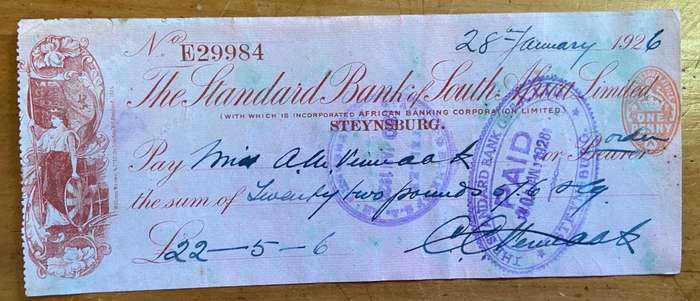 No E29984
28th January 1926
The Standard Bank of South Africa Limited
(WITH WHICH IS INCORPORATED AFRICAN BANKING CORPORATION LIMITED)
STEYNSBURG.
Pay Miss A.M. Vermaak or Bearer order
the sum of Twenty two pounds 5/6
£22-5-6
THE STANDARD BANK OF
PAID
STEYNSBURG
ONE PENNY